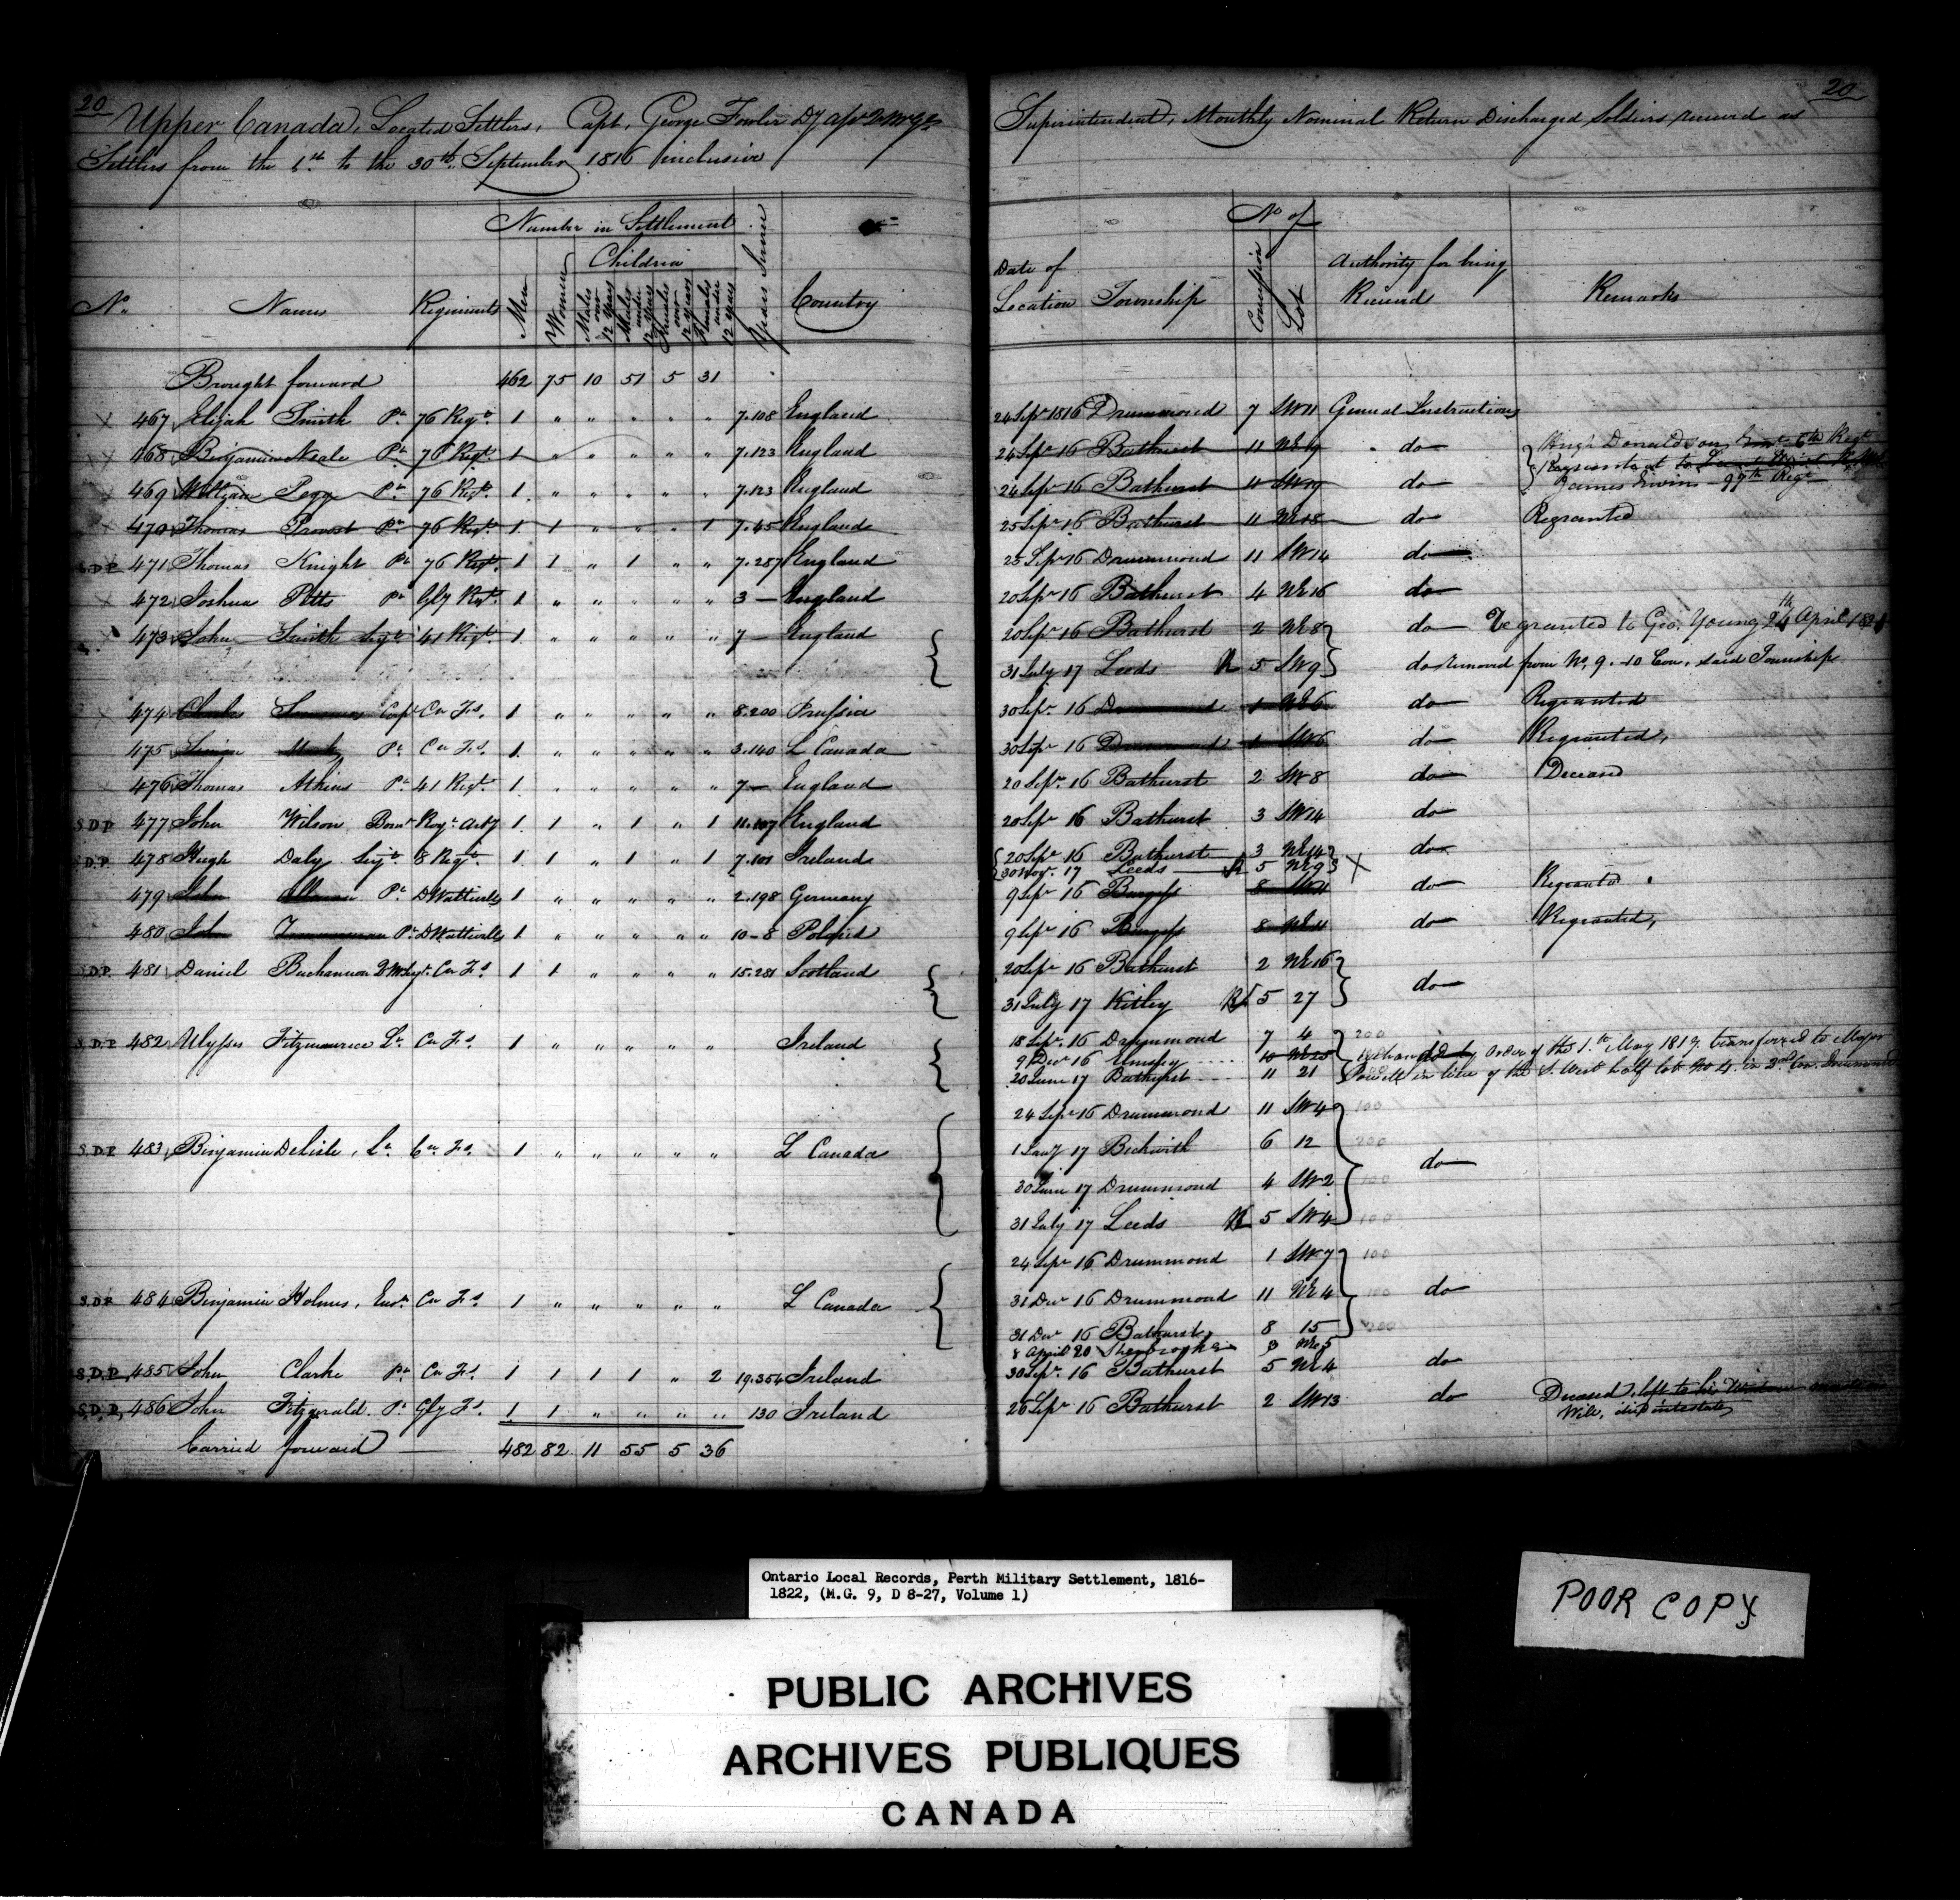 20
Upper Canada, Located Settlers, Capt. George Fowler
Settlers from the 1st to the 30th September 1816 inclusive
Number in Settlement
Children
No. Names Regiments Men Women Males over 12 years Males under 12 years Females over 12 years Females under 12 years Years Served Country
Brought forward 462 75 10 51 5 31
467 Elijah Smith Pt. 76 Regt. 1 " " " " " 7.108 England
468 Benjamin Neale Pt. 76 Regt. 1 " " " " " 7.123 England
469 William Pegg Pt. 76 Regt. 1 " " " " " 7.123 England
470 Thomas Provost Pt. 76 Regt. 1 1 " " " 1 7.45 England
S.D.P. 471 Thomas Knight Pt. 76 Regt. 1 1 " 1 " " 7.287 England
472 Joshua Potts Pt. Gly Regt. 1 " " " " " 3 — England
473 John Smith Sergt. 41 Regt. 1 " " " " " 7 — England
474 Charles Corpl. Cn Fs. 1 " " " " " 8.200 Prussia
475 Pt. Cn Fs. 1 " " " " " 3.140 L Canada
476 Thomas Atkins Pt. 41 Regt. 1 " " " " " 7 — England
S.D.P. 477 John Wilson Bomr. Royl. Arty 1 1 " 1 " 1 11.107 England
S.D.P. 478 Hugh Daly Sergt. 8 Regt. 1 1 " 1 " 1 7.101 Ireland
479 John Pt. DWatteville 1 " " " " " 2.198 Germany
480 John Zimmerman Pt. DWatteville 1 " " " " " 10-8 Poland
S.D.P. 481 Daniel Buchannan Q.M.Sergt. Cn Fs. 1 1 " " " " 15.281 Scotland
S.D.P. 482 Ulysses Fitzmaurice Lt. Cn Fs. 1 " " " " " Ireland
S.D.P. 483 Benjamin Delisle, Lt. Cn Fs. 1 " " " " " L Canada
S.D.P. 484 Benjamin Holmes, Ensn. Cn Fs. 1 " " " " " L Canada
S.D.P. 485 John Clarke Pt. Cn Fs. 1 1 1 1 " 2 19.354 Ireland
S.D.P. 486 John Fitzgerald Pt. Gly Fs. 1 1 " " " " 130 Ireland
Carried forward — 482 82 11 55 5 36
20
Superintendent, Monthly Nominal Return Discharged Soldiers received as
No of
Date of Location Township Concession Lot Authority for being Received Remarks
24 Sepr 1816 Drummond 7 SW 11 General Instructions
24 Sepr 16 Bathurst 11 NE 19 do Hugh Donaldson 6th Regt
24 Sepr 16 Bathurst 11 SW 19 do James Irwin 99th Regt
25 Sepr 16 Bathurst 11 NE 18 do Regranted
25 Sepr 16 Drummond 11 SW 14 do
20 Sepr 16 Bathurst 4 NE 16 do
20 Sepr 16 Bathurst 2 NE 8 do Regranted to Geo. Young 24th April 1821
31 July 17 Leeds R 5 SW 9 do removed from No. 9. 10 Con. said Township
30 Sepr. 16 Drummond 1 NE 6 do Regranted
30 Sepr. 16 Drummond 1 SW 6 do Regranted,
20 Sepr. 16 Bathurst 2 SW 8 do Deceased
20 Sepr 16 Bathurst 3 SW 14 do
20 Sepr 16 Bathurst 3 NE 14 do
30 Novr. 17 Leeds R 5 NE 9 X
9 Sepr 16 Burgess 8 SW 11 do Regranted
9 Sepr 16 Burgess 8 NE 11 do Regranted,
20 Sepr 16 Bathurst 2 NE 16
31 July 17 Kitley 5 27 do
18 Sepr. 16 Drummond 7 4 200
9 Decr 16 Elmsley 10 NE 25 by order of the 1st May 1819 transferred to Major
20 June 17 Bathurst 11 21 Powell in lieu of the S. West half lot No 4 in 2nd Con. Drummond
24 Sepr 16 Drummond 11 SW 4 100
1 Jany 17 Beckwith 6 12 200
do
30 June 17 Drummond 4 SW 2 100
31 July 17 Leeds R 5 SW 4 100
24 Sepr 16 Drummond 1 SW 7 100
31 Decr 16 Drummond 11 NE 4 100 do
31 Decr 16 Bathurst 8 15 200
8 April 20 Sherbrooke 3 NE 5
30 Sepr. 16 Bathurst 5 NE 4 do
26 Sepr 16 Bathurst 2 SW 13 do Deceased, left to his Widow
Will, died intestate
Ontario Local Records, Perth Military Settlement, 1816-
1822, (M.G. 9, D 8-27, Volume 1)
POOR COPY
PUBLIC ARCHIVES
ARCHIVES PUBLIQUES
CANADA